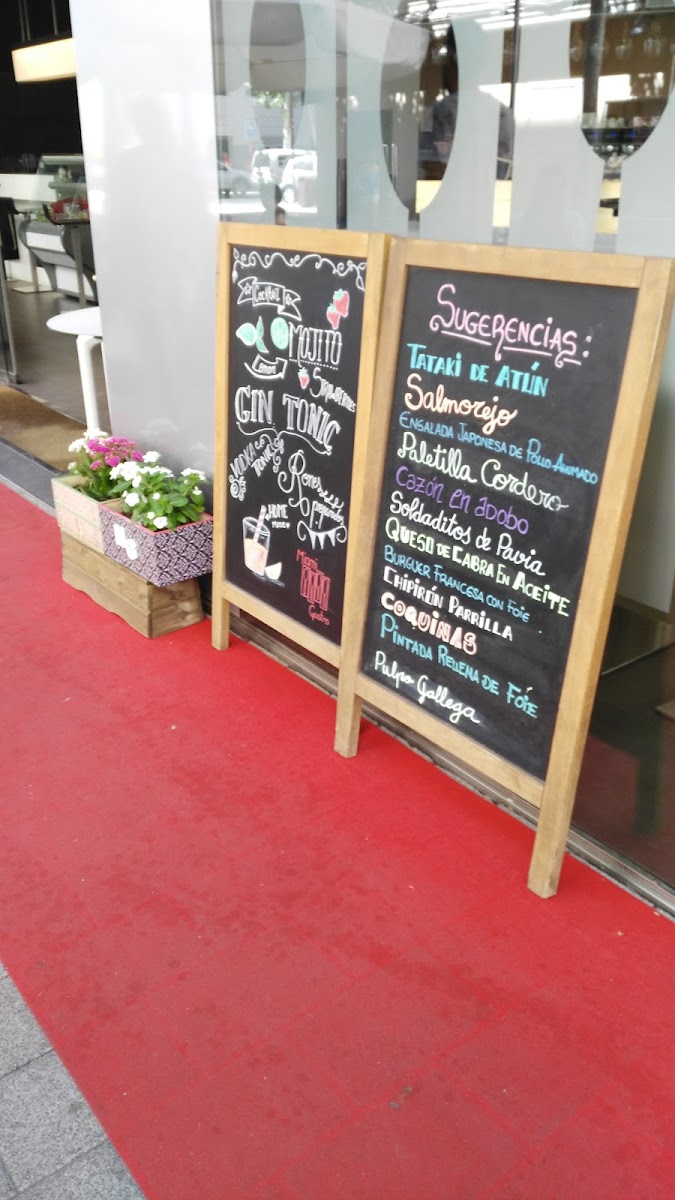 Cocktail
MOJITO
Lemon
Strawberries
GIN TONIC
VODKA
TONIC
Rones
Preparados
HOME
MADE
Miami
Gastro
SUGERENCIAS:
TATAKI DE ATÚN
Salmorejo
ENSALADA JAPONESA DE POLLO AHUMADO
Paletilla Cordero
CAZÓN EN ADOBO
Soldaditos de Pavia
QUESO DE CABRA EN ACEITE
BURGUER FRANCESA CON FOIE
CHIPIRÓN PARRILLA
COQUINAS
PINTADA RELLENA DE FOIE
Pulpo Gallega